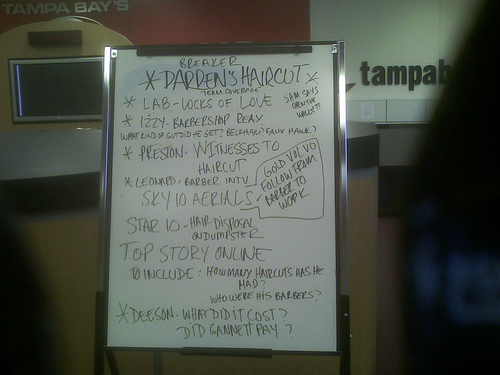 TAMPA BAY'S
tampab
BREAKER
* DARREN'S HAIRCUT *
TEAM COVERAGE
* LAB - LOCKS OF LOVE
SAM SAYS
OPEN THE
WALLET!
* IZZY - BARBERSHOP REAX
WHAT KIND OF CUT DID HE GET? BECKHAM? FAUX HAWK?
* PRESTON - WITNESSES TO
HAIRCUT
* LEONARD, BARBER INTV
SKY 10 AERIALS -
GOLD VOLVO
FOLLOW FROM
BARBER TO
WORK
STAR 10 - HAIR DISPOSAL
ON DUMPSTER
TOP STORY ONLINE
TO INCLUDE: HOW MANY HAIRCUTS HAS HE
HAD?
WHO WERE HIS BARBERS?
* DEESON - WHAT DID IT COST?
DID GANNETT PAY?